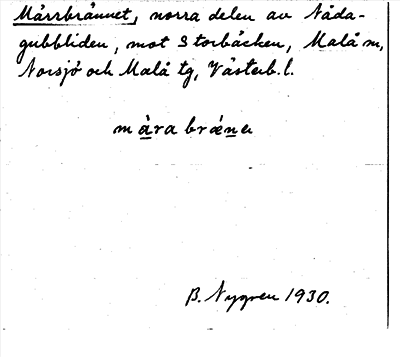 Mårrbrännet, norra delen av Nåda-
gubbliden, mot Storbäcken, Malå sn,
Norsjö och Malå tg, Västerb. l.
màra brǽna
B. Nygren 1930.